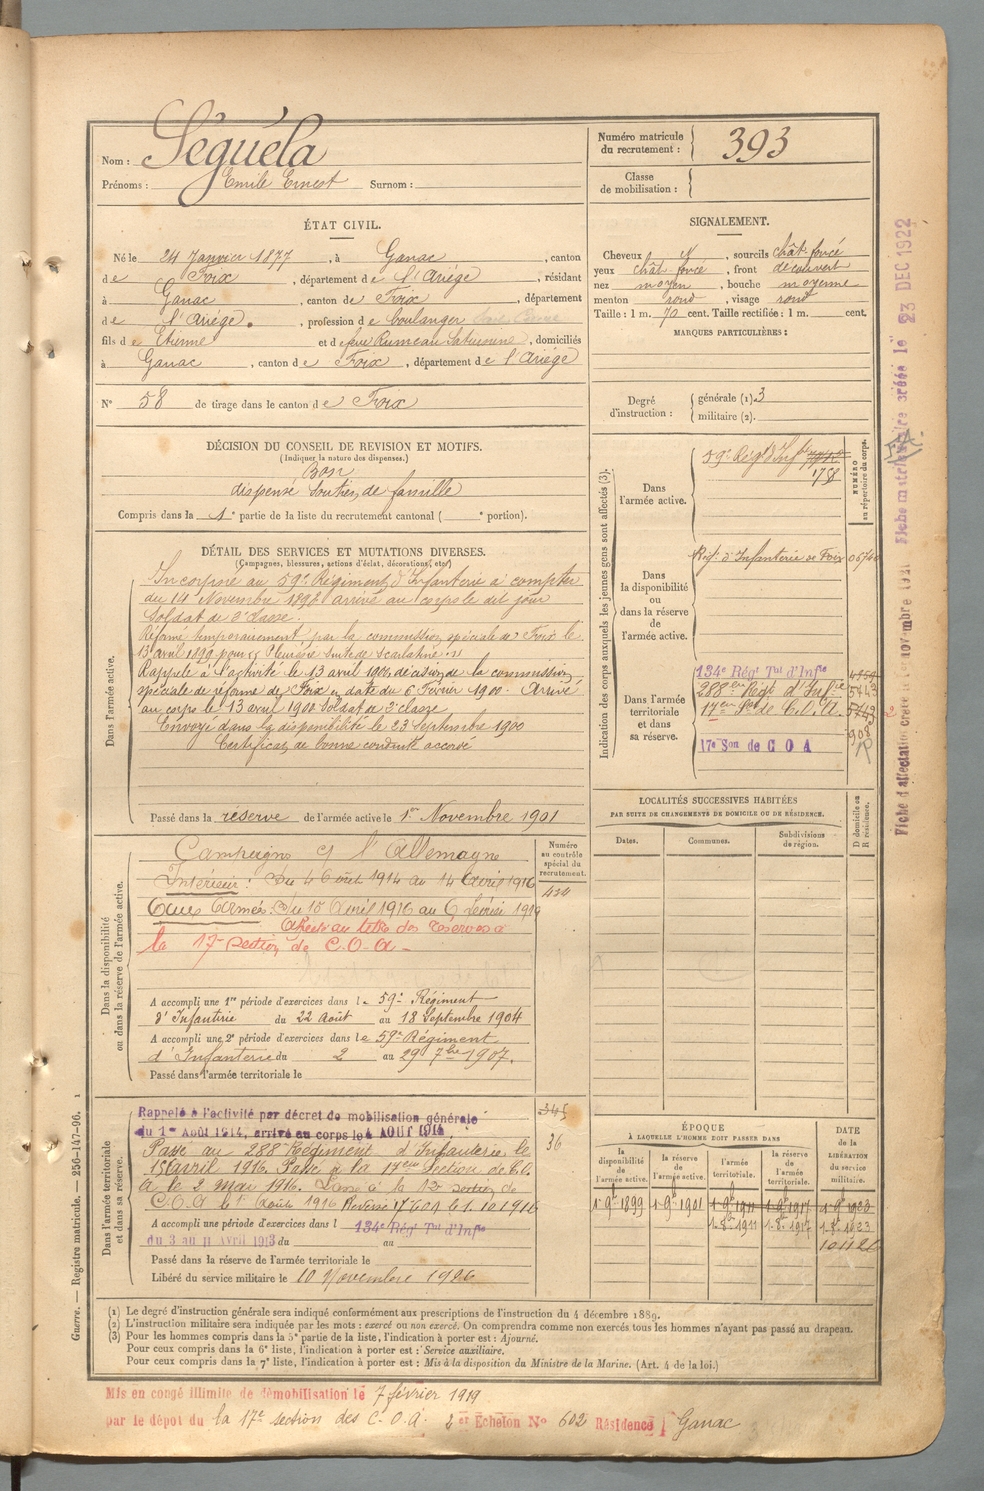 Nom : Séguéla
Prénoms : Emile Ernest Surnom :
Numéro matricule du recrutement : 393
Classe de mobilisation :
ÉTAT CIVIL.
Né le 24 Janvier 1877, à Ganac, canton
de Foix, département de l'Ariège, résidant
à Ganac, canton de Foix, département
de l'Ariège, profession de boulanger
fils de Etienne et de feue Rumeau Saturnine, domiciliés
à Ganac, canton de Foix, département de l'Ariège
N° 58 de tirage dans le canton de Foix
SIGNALEMENT.
Cheveux, sourcils chât. foncé
yeux chât. foncé, front découvert
nez moyen, bouche moyenne
menton rond, visage rond
Taille : 1 m. 70 cent. Taille rectifiée : 1 m. cent.
MARQUES PARTICULIÈRES :
Degré d'instruction : générale (1). 3
militaire (2).
DÉCISION DU CONSEIL DE REVISION ET MOTIFS.
(Indiquer la nature des dispenses.)
Bon
dispensé Soutien de famille
Compris dans la 1e partie de la liste du recrutement cantonal ( e portion).
DÉTAIL DES SERVICES ET MUTATIONS DIVERSES.
(Campagnes, blessures, actions d'éclat, décorations, etc.)
Dans l'armée active.
Incorporé au 59e Régiment d'Infanterie à compter
du 14 Novembre 1898 arrivé au corps le dit jour
Soldat de 2e classe.
Réformé temporairement par la commission spéciale de Foix le
13 avril 1899 pour Pleurésie suite de Scarlatine
Rappelé à l'activité le 13 avril 1900, décision de la commission
spéciale de réforme de Foix en date du 6 Février 1900. Arrivé
au corps le 13 avril 1900 Soldat de 2e classe
Envoyé dans la disponibilité le 23 Septembre 1900
Certificat de bonne conduite accordé
Passé dans la réserve de l'armée active le 1er Novembre 1901
Indication des corps auxquels les jeunes gens sont affectés (3).
NUMÉRO au répertoire du corps.
Dans l'armée active.
59e Régt d'Inf
178
Dans la disponibilité ou dans la réserve de l'armée active.
Régt d'Infanterie de Foix
Dans l'armée territoriale et dans sa réserve.
134e Régt Tal d'Infie
288e Régt d'Infie
17e Son de C.O.A.
17e Son de C O A
908
LOCALITÉS SUCCESSIVES HABITÉES
PAR SUITE DE CHANGEMENTS DE DOMICILE OU DE RÉSIDENCE.
Dates. Communes. Subdivisions de région. D domicile ou R résidence.
Dans la disponibilité ou dans la réserve de l'armée active.
Numéro au contrôle spécial du recrutement.
Campagne c/ l'Allemagne
Intérieur : Du 4 Août 1914 au 14 Avril 1916
Aux Armées : Du 15 Avril 1916 au 6 Février 1919
réserves à
la 17e section de C.O.A.
A accompli une 1re période d'exercices dans le 59e Régiment
d'Infanterie du 22 août au 18 Septembre 1904
A accompli une 2e période d'exercices dans le 59e Régiment
d'Infanterie du 2 au 29 7bre 1907.
Passé dans l'armée territoriale le
Dans l'armée territoriale et dans sa réserve.
345
36
Rappelé à l'activité par décret de mobilisation générale
du 1er Août 1914, arrivé au corps le 4 AOUT 1914
Passé au 288e Régiment d'Infanterie le
15 avril 1916. Passé à la 17eme Section de C.O.
A le 2 mai 1916. Passé à la section de
C.O.A le 1er Août 1916
A accompli une période d'exercices dans l 134e Régt Tal d'Infie
du 3 au 11 Avril 1913 du au
Passé dans la réserve de l'armée territoriale le
Libéré du service militaire le 10 Novembre 1926
ÉPOQUE
À LAQUELLE L'HOMME DOIT PASSER DANS
la disponibilité de l'armée active. la réserve de l'armée active. l'armée territoriale. la réserve de l'armée territoriale.
DATE de la LIBÉRATION du service militaire.
1-9bre 1899 1-9bre 1901 1-9bre 1911 1-9bre 1917
1-8bre 1911 1-8bre 1917 1-8bre 1923
(1) Le degré d'instruction générale sera indiqué conformément aux prescriptions de l'instruction du 4 décembre 1889.
(2) L'instruction militaire sera indiquée par les mots : exercé ou non exercé. On comprendra comme non exercés tous les hommes n'ayant pas passé au drapeau.
(3) Pour les hommes compris dans la 5e partie de la liste, l'indication à porter est : Ajourné.
Pour ceux compris dans la 6e liste, l'indication à porter est : Service auxiliaire.
Pour ceux compris dans la 7e liste, l'indication à porter est : Mis à la disposition du Ministre de la Marine. (Art. 4 de la loi.)
Mis en congé illimité de démobilisation le 7 février 1919
par le dépôt du la 17e section des C.O.A. 2er Echelon N° 602 Résidence Ganac
Guerre. — Registre matricule. — 256-147-96. 1
Fiche matriculaire créée le 23 DEC 1922